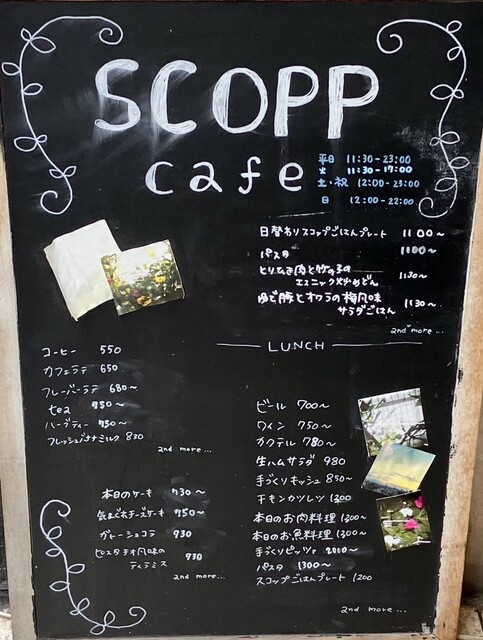 SCOPP
cafe
平日 11:30-23:00
火 11:30-17:00
土・祝 12:00-23:00
日 12:00-22:00
日替わりスコップごはんプレート 1100〜
パスタ 1100〜
とりひき肉と竹の子の
エスニック炒めどん 1130〜
ゆで豚とオクラの梅風味
サラダごはん 1130〜
and more...
LUNCH
コーヒー 550
カフェラテ 650
フレーバーラテ 680〜
tea 750〜
ハーブティー 750〜
フレッシュバナナミルク 830
and more...
本日のケーキ 730〜
気まぐれチーズケーキ 750〜
ガトーショコラ 730
ピスタチオ風味の
ティラミス 730
and more...
ビール 700〜
ワイン 750〜
カクテル 780〜
生ハムサラダ 980
手づくりキッシュ 850〜
チキンカツレツ 1300
本日のお肉料理 1300〜
本日のお魚料理 1300〜
手づくりピッツァ 2010〜
パスタ 1300〜
スコップごはんプレート 1200
and more...